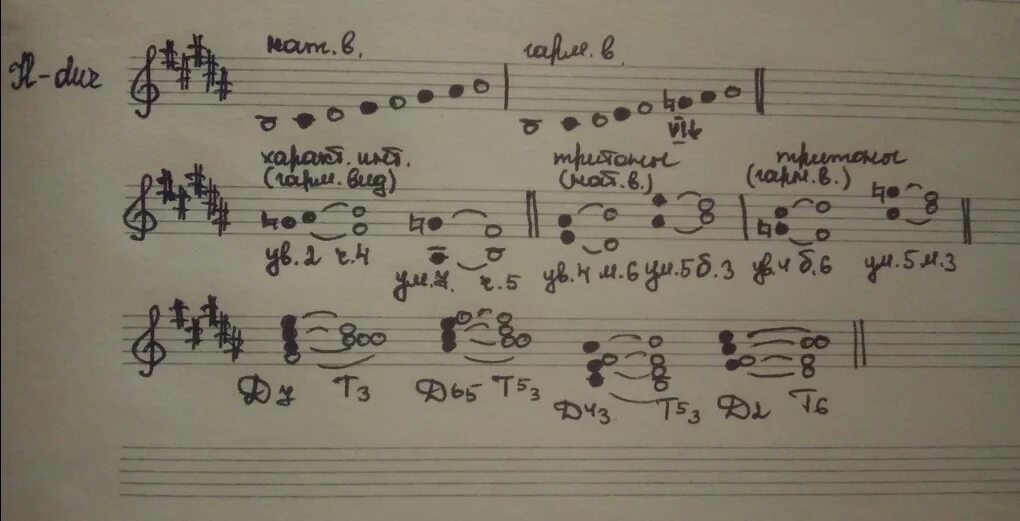 H-dur нат. в. гарм. в.
VI♭
характ. инт. тритоны тритоны
(гарм. вид) (нат. в.) (гарм. в.)
ув. 2 ч. 4 ум. 7. ч. 5 ув. 4 м. 6 ум. 5 б. 3 ув. 4 б. 6 ум. 5 м. 3
Д7 Т3 Д65 Т53 Д43 Т53 Д2 Т6